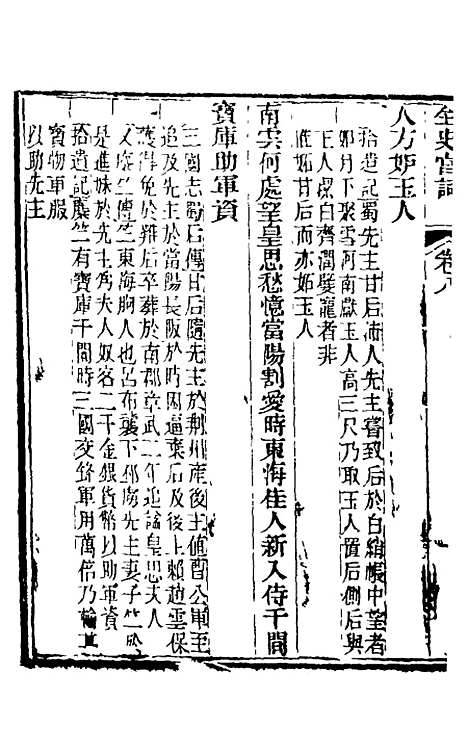 全史宮詞 卷八
人方妬玉人
拾遺記蜀先主甘后沛人先主嘗致后於白綃帳中望者
如月下聚雪河南獻玉人高三尺乃取玉人置后側后與
玉人潔白齊潤嬖寵者非
惟妬甘后而亦妬玉人
南雲何處望皇思愁憶當陽割愛時東海佳人新入侍千間
寶庫助軍資
三國志蜀后傳甘后隨先主於荆州產後主值曹公軍至
追及先主於當陽長阪於時困逼棄后及後主賴趙雲保
護得免於難后卒葬於南郡章武二年追諡皇思夫人
又麋竺傳竺東海朐人也呂布襲下邳虜先主妻子竺於
是進妹於先主爲夫人奴客二千金銀貨幣以助軍資
拾遺記麋竺有寶庫千間時三國交鋒軍用萬倍乃輸其
寳物軍服
以助先主